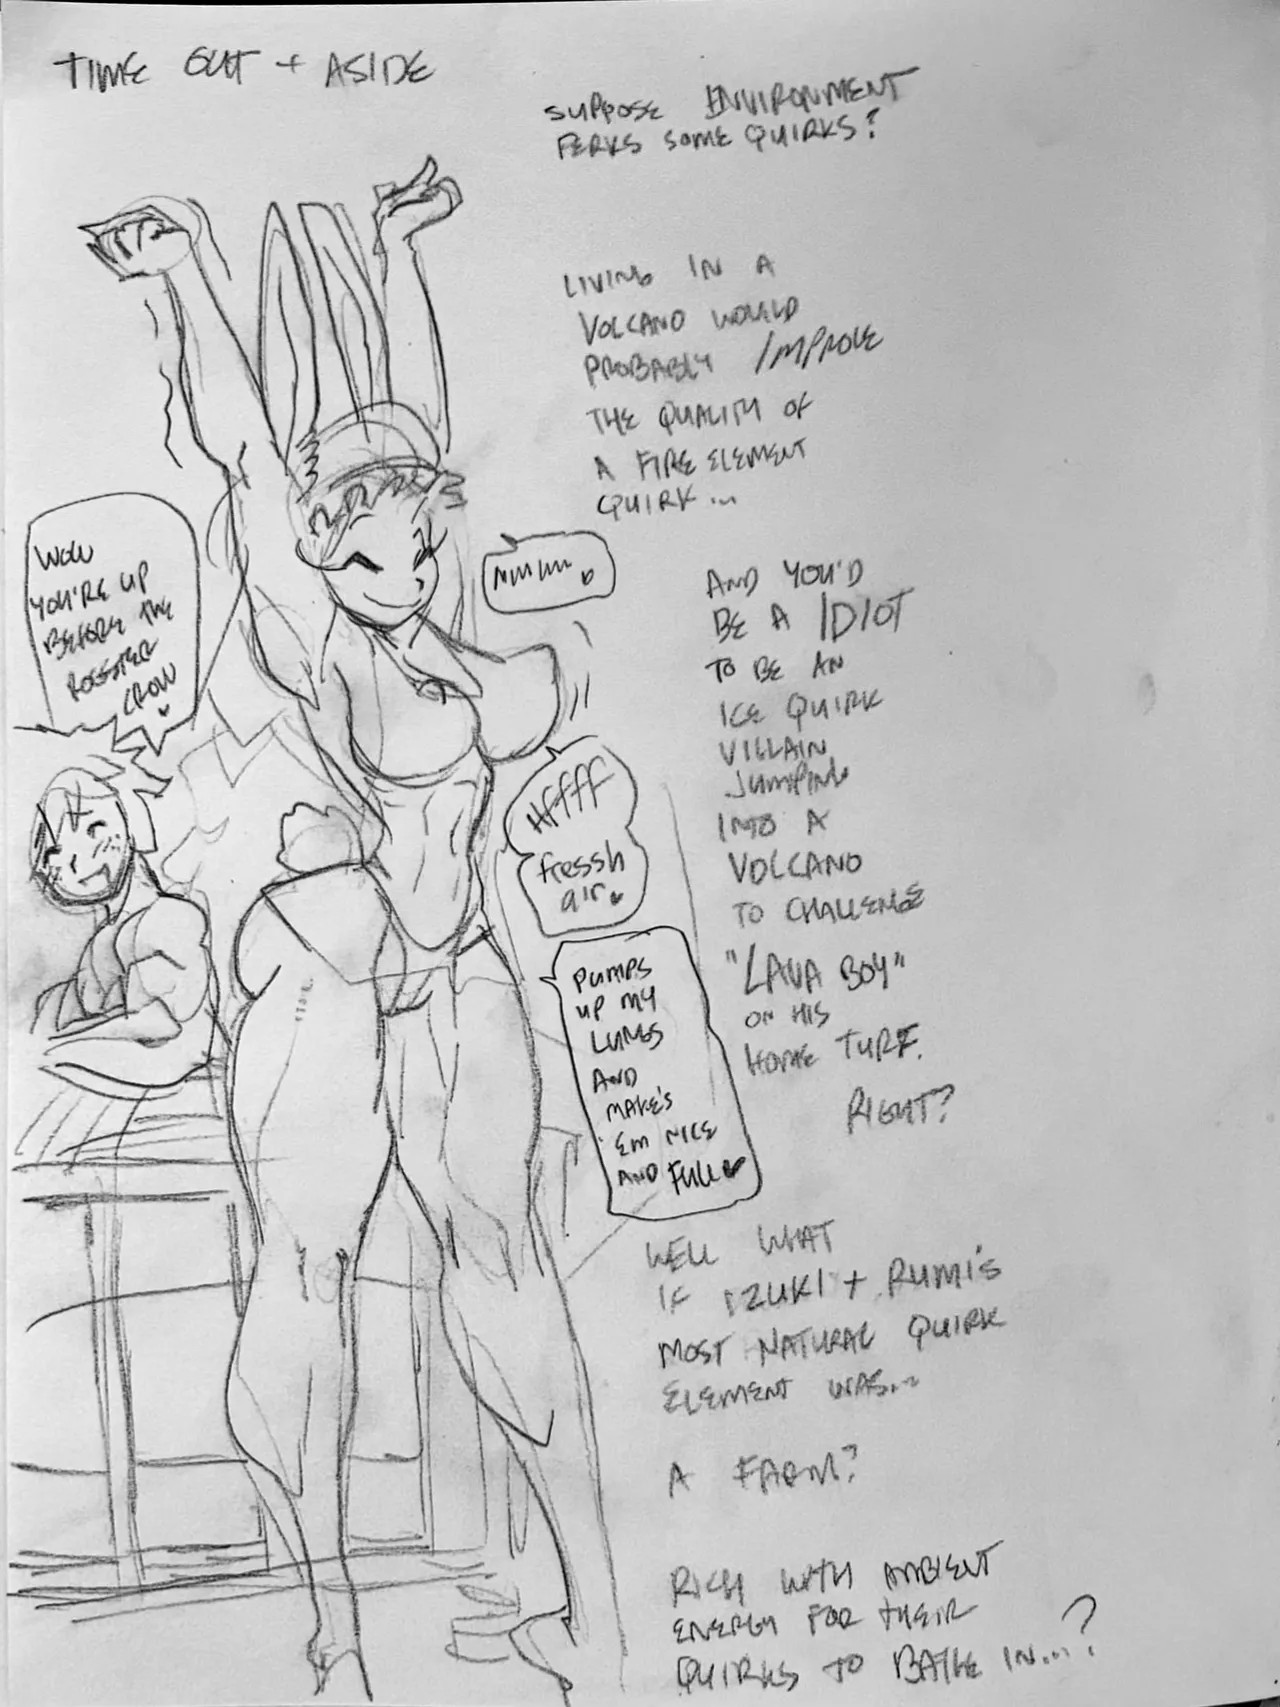 TIME OUT + ASIDE
SUPPOSE ENVIRONMENT
PERKS SOME QUIRKS?
LIVING IN A
VOLCANO WOULD
PROBABLY IMPROVE
THE QUALITY OF
A FIRE ELEMENT
QUIRK...
WOW
YOU'RE UP
BEFORE THE
ROOSTER
CROW
mmmm
AND YOU'D
BE A IDIOT
TO BE AN
ICE QUIRK
VILLAIN
JUMPING
INTO A
VOLCANO
TO CHALLENGE
"LAVA BOY"
ON HIS
HOME TURF.
RIGHT?
Hffff
fressh
air
PUMPS
UP MY
LUNGS
AND
MAKE'S
'EM NICE
AND FULL
WELL WHAT
IF IZUKI + RUMI'S
MOST NATURAL QUIRK
ELEMENT WAS...
A FARM?
RICH WITH AMBIENT
ENERGY FOR THEIR
QUIRKS TO BATHE IN...?